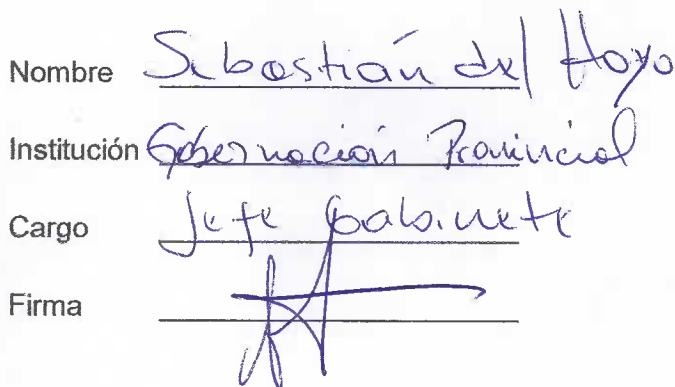 Nombre Sebastián del Hoyo
Institución Gobernación Provincial
Cargo Jefe Gabinete
Firma